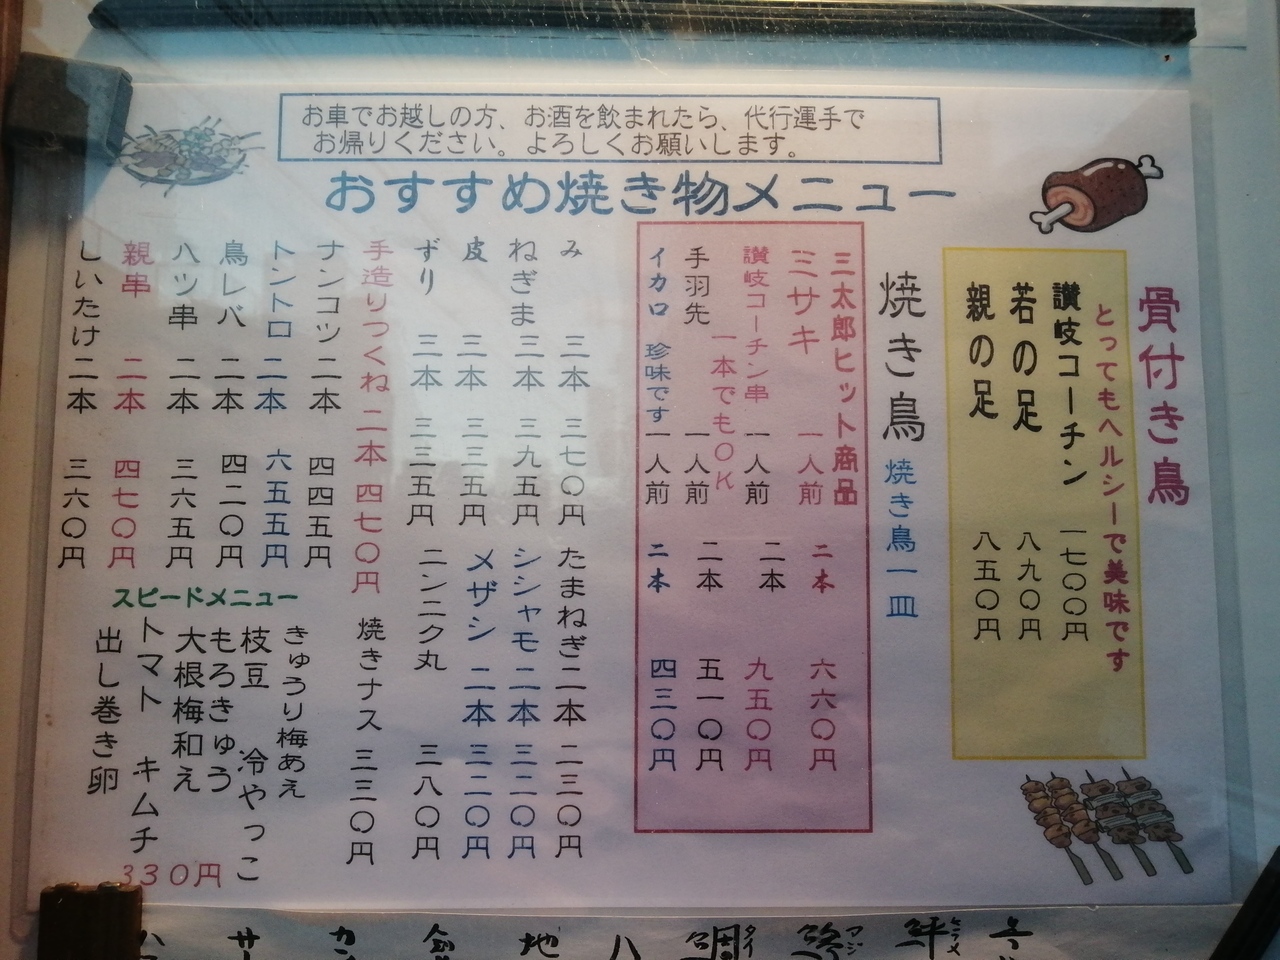 お車でお越しの方、お酒を飲まれたら、代行運手で
お帰りください。よろしくお願いします。
おすすめ焼き物メニュー
骨付き鳥
とってもヘルシーで美味です
讃岐コーチン 一七〇〇円
若の足 八九〇円
親の足 八五〇円
焼き鳥 焼き鳥一皿
三太郎ヒット商品
ミサキ 一人前 二本 六六〇円
讃岐コーチン串 一人前 二本 九五〇円
一本でもOK
手羽先 一人前 二本 五一〇円
イカロ 珍味です 一人前 二本 四三〇円
み 三本 三七〇円
ねぎま 三本 三九五円
皮 三本 三三五円
ずり 三本 三三五円
手造りつくね 二本 四七〇円
ナンコツ 二本 四四五円
トントロ 二本 六五五円
鳥レバ 二本 四二〇円
ハツ串 二本 三六五円
親串 二本 四七〇円
しいたけ 二本 三六〇円
たまねぎ 二本 二三〇円
シシャモ 二本 三二〇円
メザシ 二本 三二〇円
ニンニク丸 三八〇円
焼きナス 三三〇円
スピードメニュー
きゅうり梅あえ
枝豆 冷やっこ
もろきゅう
大根梅和え
トマト キムチ
出し巻き卵
330円
タイ
地
八
鯛